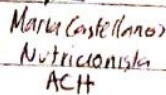 Maria Castellanos
Nutricionista
ACH